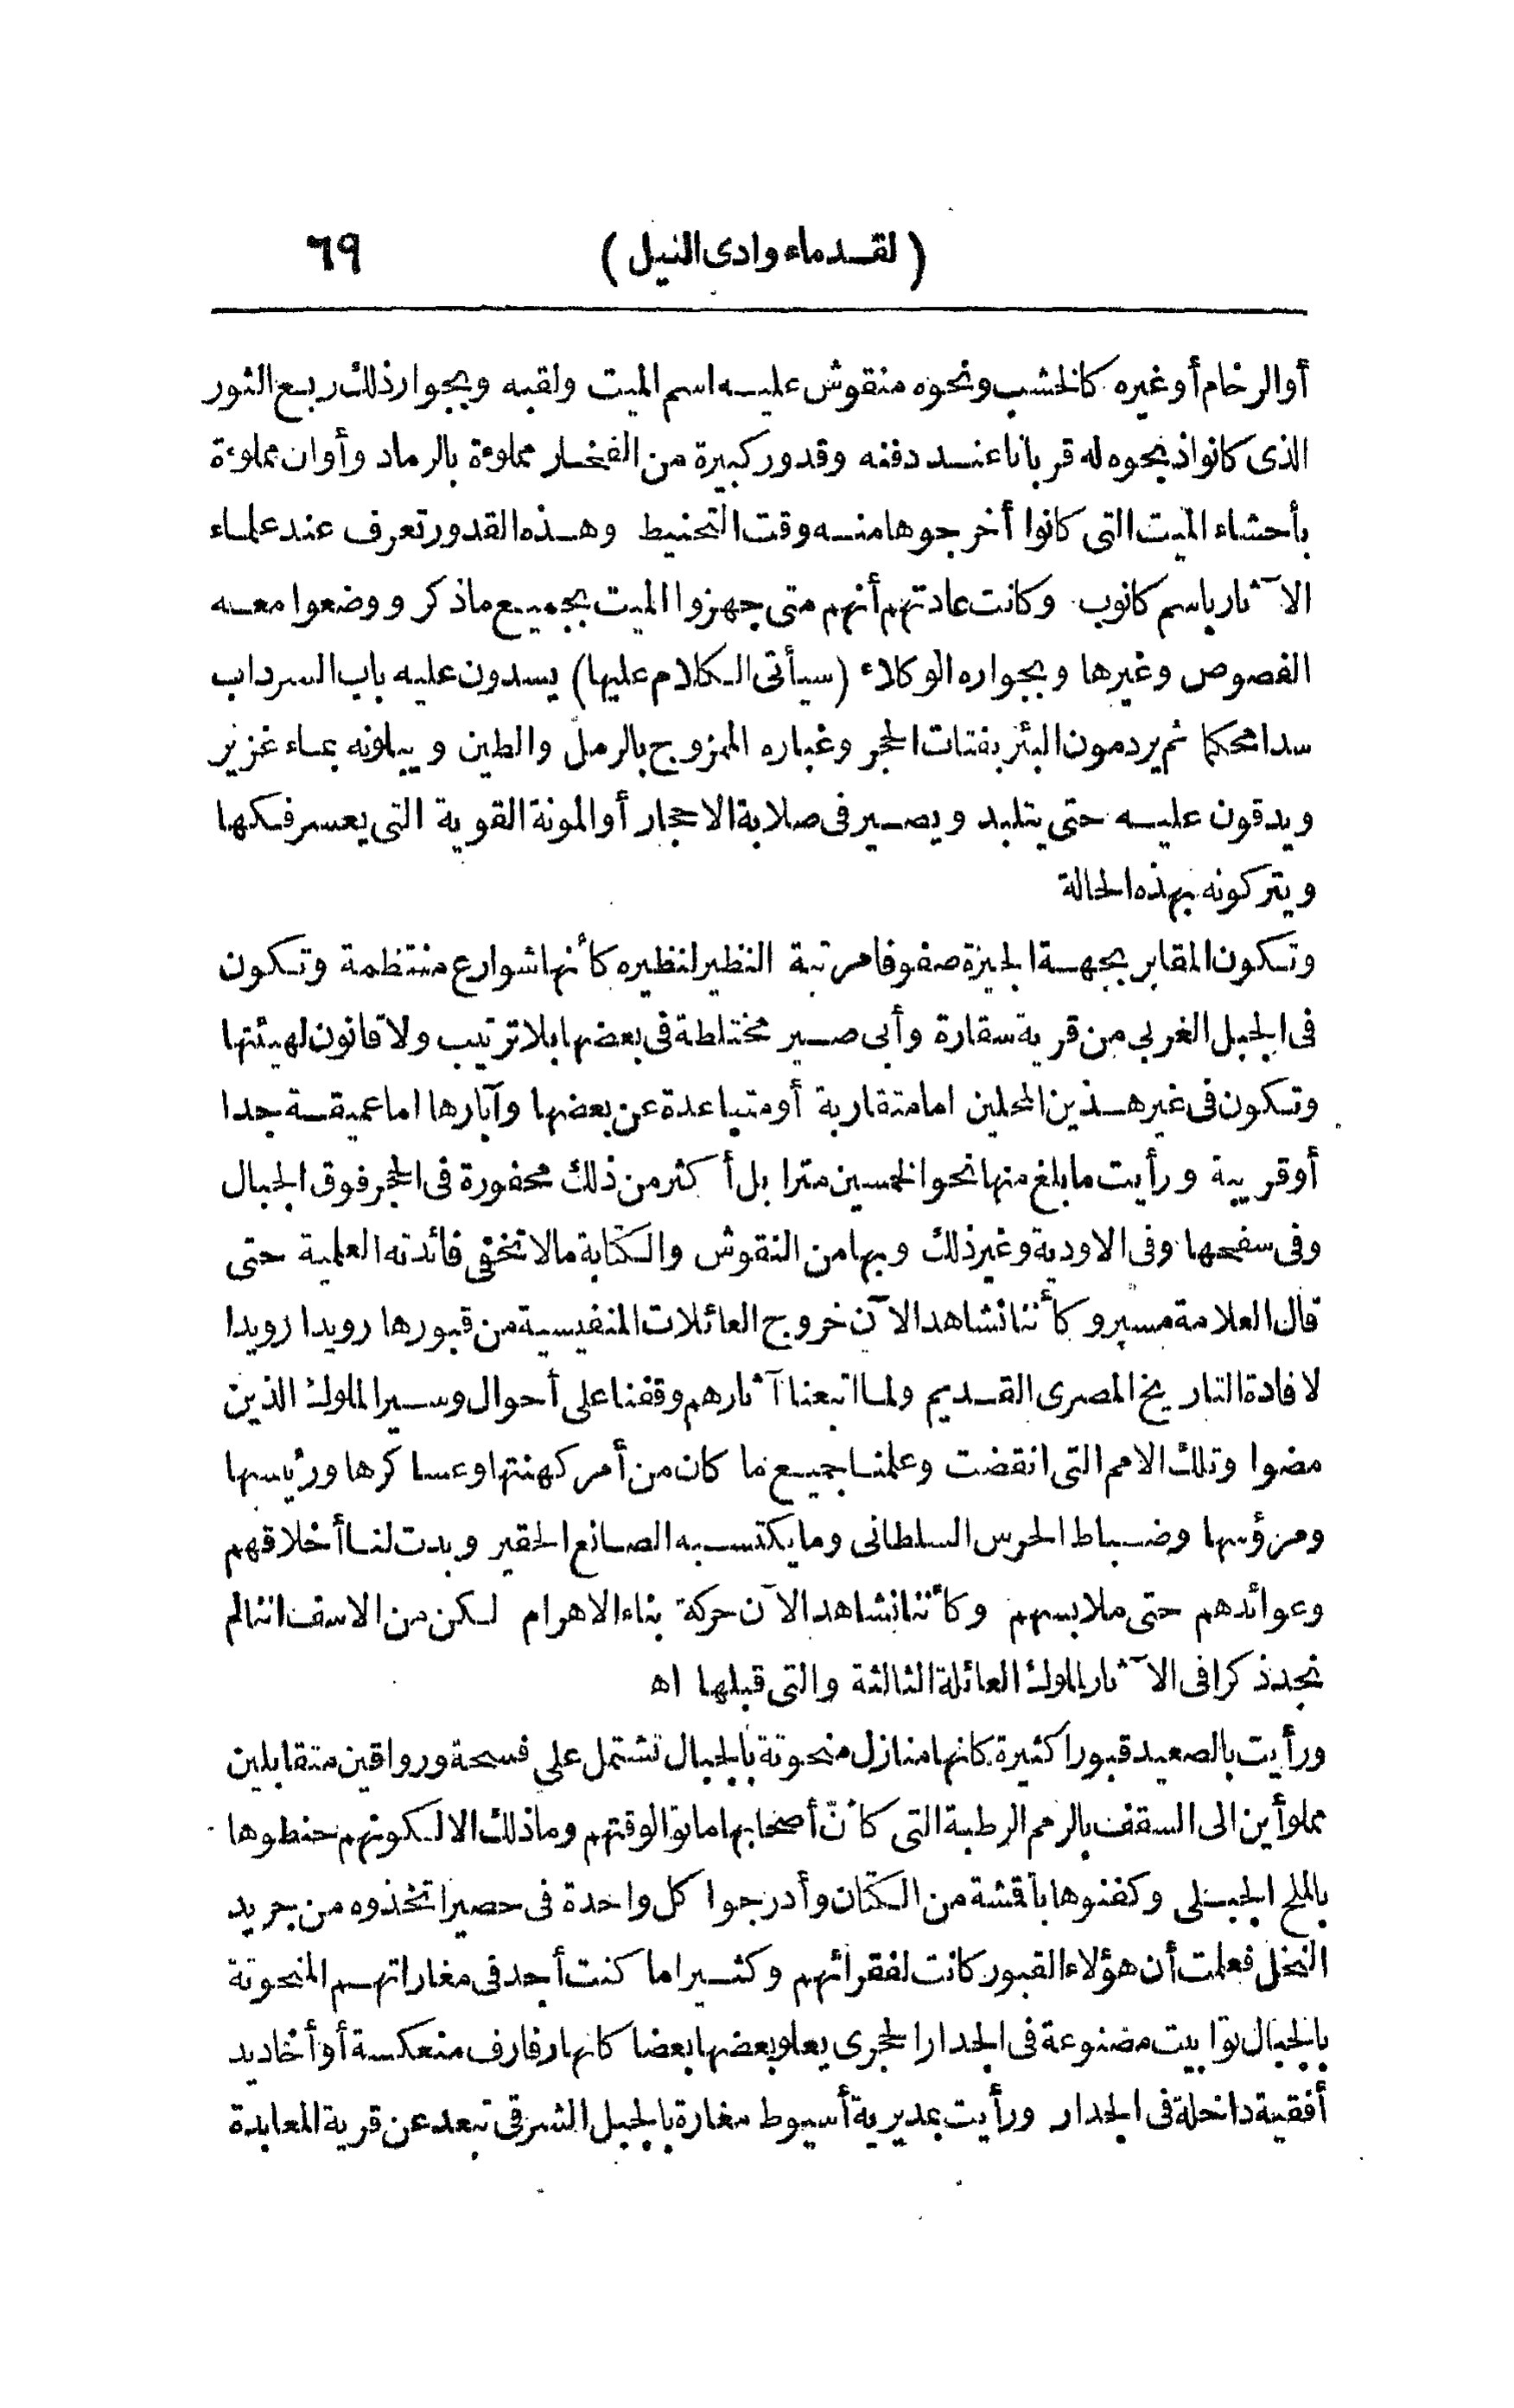 (لقدماء وادى النيل) ٦٩
أو الرخام أو غيره كالخشب ونحوه منقوش عليه اسم الميت ولقبه وبجوار ذلك ربع الثور
الذى كانوا ذبحوه له قربانا عند دفنه وقدور كبيرة من الفخار مملوءة بالرماد وأوان مملوءة
بأحشاء الميت التى كانوا أخرجوها منه وقت التحنيط وهذه القدور تعرف عند علماء
الآثار باسم كانوب وكانت عادتهم أنهم متى جهزوا الميت بجميع ماذكر ووضعوا معه
الفصوص وغيرها وبجواره الوكلاء (سيأتى الكلام عليها) يسدون عليه باب السرداب
سدا محكما ثم يردمون البئر بفتات الحجر وغباره الممزوج بالرمل والطين ويبلونه بماء غزير
ويدقون عليه حتى يتلبد ويصير فى صلابة الاحجار أو المونة القوية التى يعسر فكها
ويتركونه بهذه الحالة
وتكون المقابر بجهة الجيزة صفوفا مرتبة النظير لنظيره كأنها شوارع منتظمة وتكون
فى الجبل الغربى من قرية سقارة وأبى صير مختلطة فى بعضها بلا ترتيب ولا قانون لهيئتها
وتكون فى غير هذين المحلين اما متقاربة أو متباعدة عن بعضها وآبارها اما عميقة جدا
أو قريبة ورأيت ما بلغ منها نحو الخمسين مترا بل أكثر من ذلك محفورة فى الحجر فوق الجبال
وفى سفحها وفى الاودية وغير ذلك وبها من النقوش والكتابة مالا تخفى فائدته العلمية حتى
قال العلامة مسپرو كأننا نشاهد الآن خروج العائلات المنفيسية من قبورها رويدا رويدا
لافادة التاريخ المصرى القديم ولما اتبعنا آثارهم وقفنا على أحوال وسير الملوك الذين
مضوا وتلك الامم التى انقضت وعلمنا جميع ما كان من أمر كهنتها وعساكرها ورئيسها
ومرؤسها وضباط الحرس السلطانى وما يكتسبه الصانع الحقير وبدت لنا أخلاقهم
وعوائدهم حتى ملابسهم وكأننا نشاهد الآن حركة بناء الاهرام لكن من الاسف اننا لم
نجد ذكرا فى الآثار لملوك العائلة الثالثة والتى قبلها اه
ورأيت بالصعيد قبورا كثيرة كانها منازل منحوتة بالجبال تشتمل على فسحة ورواقين متقابلين
مملوأين الى السقف بالرمم الرطبة التى كأنّ أصحابها ماتوا لوقتهم وما ذلك الا لكونهم حنطوها
بالملح الجبلى وكفنوها باقشة من الكتان وأدرجوا كل واحدة فى حصير اتخذوه من جريد
النخل فعلمت أن هؤلاء القبور كانت لفقرائهم وكثيرا ما كنت أجد فى مغاراتهم المنحوتة
بالجبال توابيت مصنوعة فى الجدار الحجرى يعلو بعضها بعضا كانها رفارف منعكسة أو أخاديد
أفقية داخلة فى الجدار ورأيت بمديرية أسيوط مغارة بالجبل الشرقى تبعد عن قرية المعابدة